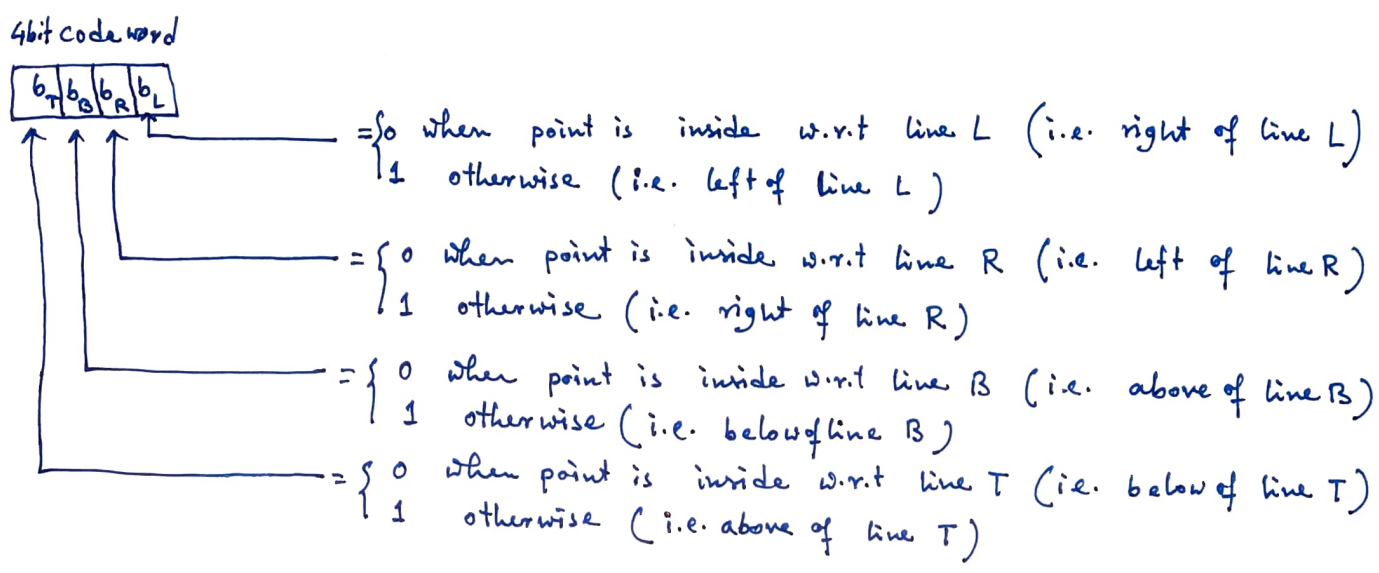 4bit code word
b_T b_B b_R b_L
= { 0 when point is inside w.r.t line L (i.e. right of line L)
1 otherwise (i.e. left of line L)
= { 0 when point is inside w.r.t line R (i.e. left of line R)
1 otherwise (i.e. right of line R)
= { 0 when point is inside w.r.t line B (i.e. above of line B)
1 otherwise (i.e. below of line B)
= { 0 when point is inside w.r.t line T (i.e. below of line T)
1 otherwise (i.e. above of line T)